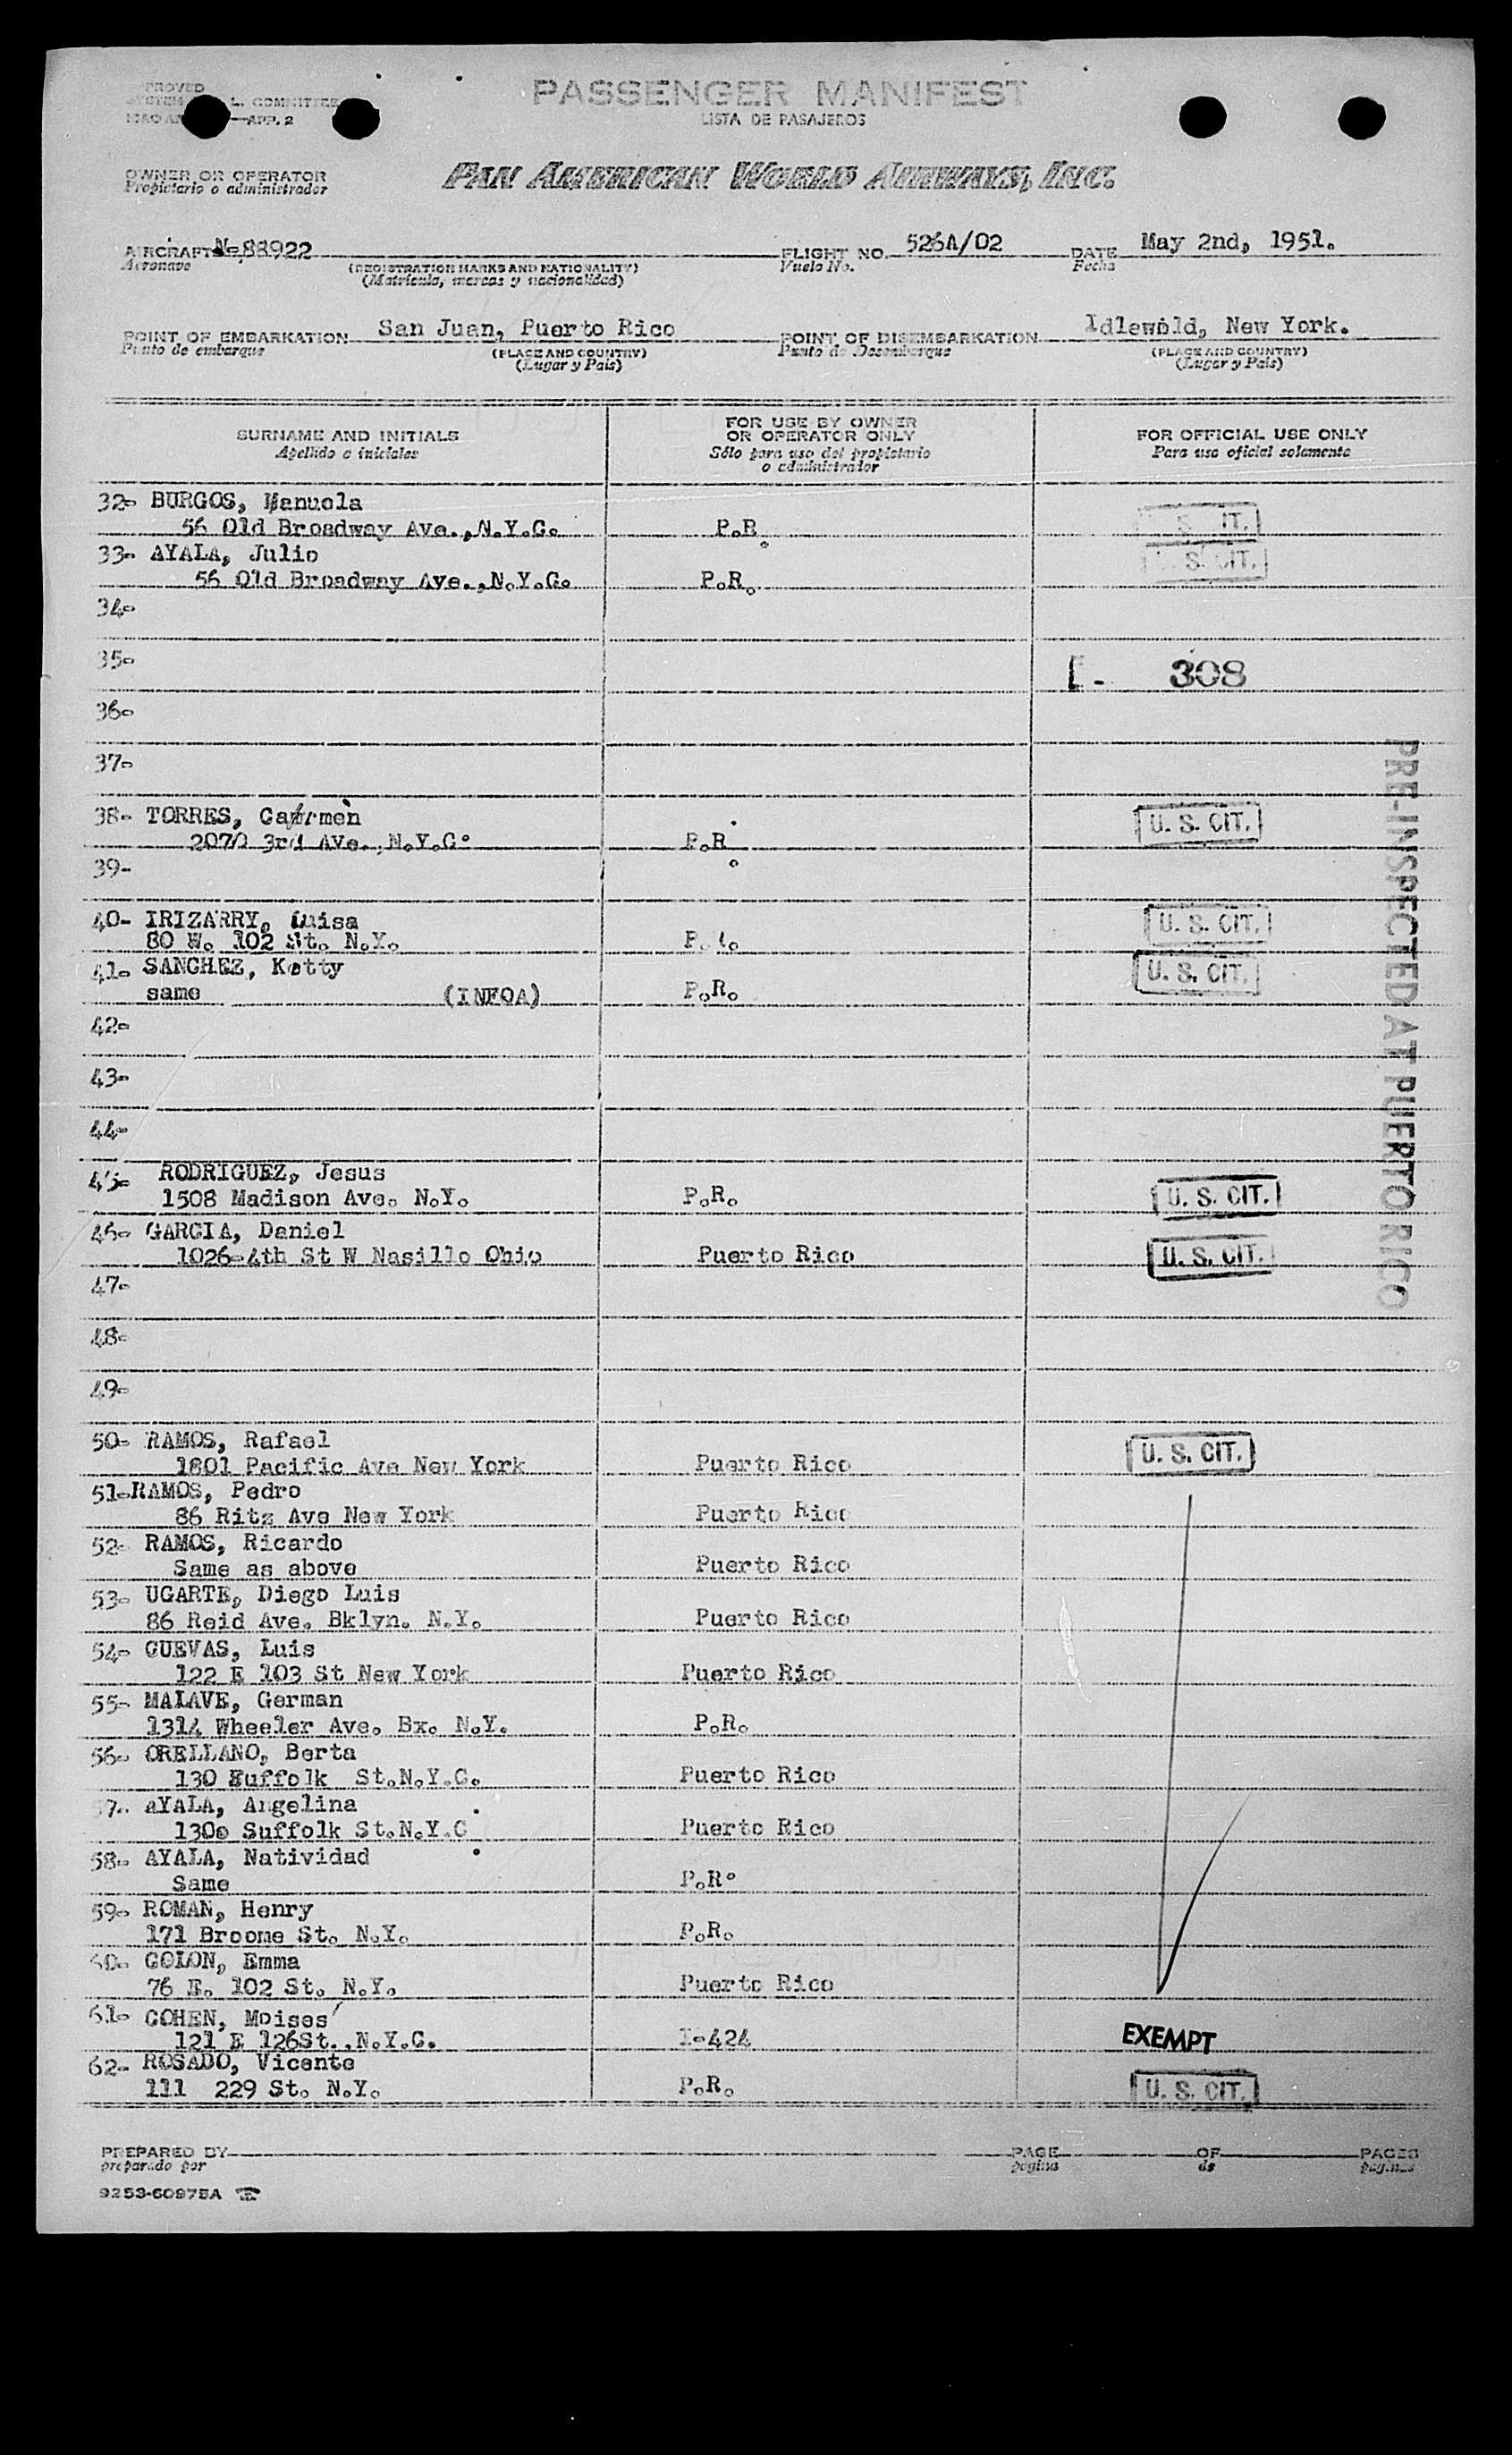 PASSENGER MANIFEST
LISTA DE PASAJEROS
L. COMMITTEE
APP. 2
OWNER OR OPERATOR
Propietario o administrador
PAN AMERICAN WORLD AIRWAYS, INC.
AIRCRAFT N-88922 FLIGHT NO. 526A/02 DATE May 2nd, 1951.
Aeronave (REGISTRATION MARKS AND NATIONALITY) Vuelo No. Fecha
(Matrícula, marcas y nacionalidad)
POINT OF EMBARKATION San Juan, Puerto Rico POINT OF DISEMBARKATION Idlewold, New York.
Punto de embarque (PLACE AND COUNTRY) Punto de Desembarque (PLACE AND COUNTRY)
(Lugar y País) (Lugar y País)
SURNAME AND INITIALS FOR USE BY OWNER OR OPERATOR ONLY FOR OFFICIAL USE ONLY
Apellido e iniciales Sólo para uso del propietario o administrador Para uso oficial solamente
32- BURGOS, Manuela
56 Old Broadway Ave., N.Y.C. P.R.
33- AYALA, Julio S. CIT.
56 Old Broadway Ave., N.Y.C. P.R.
34-
35- 308
36-
37-
38- TORRES, Carmen U. S. CIT.
2070 3rd AVe. N.Y.C. P.R.
39-
40- IRIZARRY, Luisa U. S. CIT.
80 W. 102 St. N.Y.
41- SANCHEZ, Ketty U. S. CIT.
same (INFOA) P.R.
42-
43-
44-
45- RODRIGUEZ, Jesus
1508 Madison Ave. N.Y. P.R. U. S. CIT.
46- GARCIA, Daniel
1026-4th St W Nasillo Ohio Puerto Rico U. S. CIT.
47-
48-
49-
50- RAMOS, Rafael U. S. CIT.
1801 Pacific Ave New York Puerto Rico
51- RAMOS, Pedro
86 Ritz Ave New York Puerto Rico
52- RAMOS, Ricardo
Same as above Puerto Rico
53- UGARTE, Diego Luis
86 Reid Ave. Bklyn. N.Y. Puerto Rico
54- CUEVAS, Luis
122 E 103 St New York Puerto Rico
55- MALAVE, German
1314 Wheeler Ave. Bx. N.Y. P.R.
56- ORELLANO, Berta
130 Suffolk St.N.Y.C. Puerto Rico
57- aYALA, Angelina
130 Suffolk St.N.Y.C Puerto Rico
58- AYALA, Natividad
Same P.R.
59- ROMAN, Henry
171 Broome St. N.Y. P.R.
60- COLON, Emma
76 E. 102 St. N.Y. Puerto Rico
61- COHEN, Moises
121 E 126St., N.Y.C. I-424 EXEMPT
62- ROSADO, Vicente
111 229 St. N.Y. P.R. U. S. CIT.
PRE-INSPECTED AT PUERTO RICO
PREPARED BY PAGE OF PAGES
preparado por pagina de paginas
9253-60975A